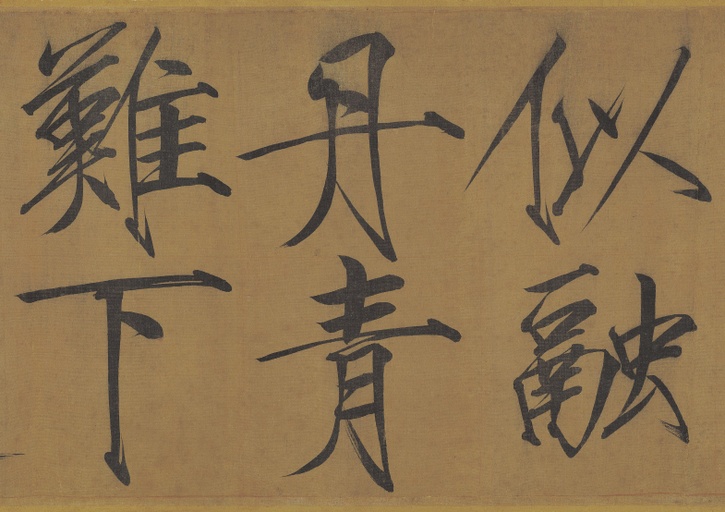 似融
丹青
難下